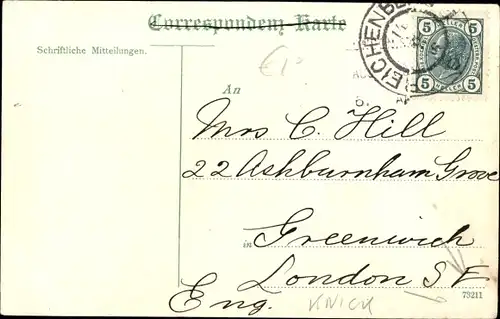 Correspondenz-Karte
Schriftliche Mitteilungen.
REICHENBE
5 HELLER 5
5 HELLER 5
An
Mrs C. Hill
22 Ashburnham Grove
in Greenwich
London S E
Eng.
KNICK
79211